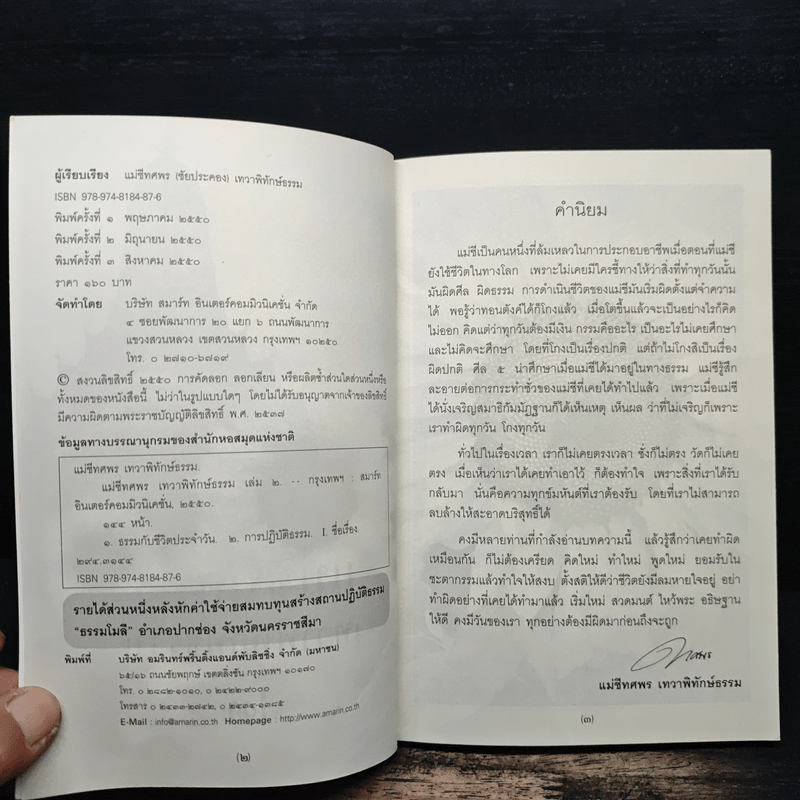 ผู้เรียบเรียง แม่ชีทศพร (ชัยประคอง) เทวาพิทักษ์ธรรม
ISBN 978-974-8184-87-6
พิมพ์ครั้งที่ ๑ พฤษภาคม ๒๕๕๐
พิมพ์ครั้งที่ ๒ มิถุนายน ๒๕๕๐
พิมพ์ครั้งที่ ๓ สิงหาคม ๒๕๕๐
ราคา ๑๖๐ บาท
จัดทำโดย บริษัท สมาร์ท อินเตอร์คอมมิวนิเคชั่น จำกัด
๔ ซอยพัฒนาการ ๒๐ แยก ๖ ถนนพัฒนาการ
แขวงสวนหลวง เขตสวนหลวง กรุงเทพฯ ๑๐๒๕๐
โทร. ๐ ๒๗๑๐-๖๗๑๙
© สงวนลิขสิทธิ์ ๒๕๕๐ การคัดลอก ลอกเลียน หรือผลิตซ้ำส่วนใดส่วนหนึ่งหรือ
ทั้งหมดของหนังสือนี้ ไม่ว่าในรูปแบบใดๆ โดยไม่ได้รับอนุญาตจากเจ้าของลิขสิทธิ์
มีความผิดตามพระราชบัญญัติลิขสิทธิ์ พ.ศ. ๒๕๓๗
ข้อมูลทางบรรณานุกรมของสำนักหอสมุดแห่งชาติ
แม่ชีทศพร เทวาพิทักษ์ธรรม.
แม่ชีทศพร เทวาพิทักษ์ธรรม เล่ม ๒. -- กรุงเทพฯ : สมาร์ท
อินเตอร์คอมมิวนิเคชั่น, ๒๕๕๐.
๑๔๔ หน้า.
๑. ธรรมกับชีวิตประจำวัน. ๒. การปฏิบัติธรรม. I. ชื่อเรื่อง.
๒๙๔.๓๑๔๔
ISBN 978-974-8184-87-6
รายได้ส่วนหนึ่งหลังหักค่าใช้จ่ายสมทบทุนสร้างสถานปฏิบัติธรรม
"ธรรมโมลี" อำเภอปากช่อง จังหวัดนครราชสีมา
พิมพ์ที่ บริษัท อมรินทร์พริ้นติ้งแอนด์พับลิชชิ่ง จำกัด (มหาชน)
๖๕/๑๖ ถนนชัยพฤกษ์ เขตตลิ่งชัน กรุงเทพฯ ๑๐๑๗๐
โทร. ๐ ๒๘๘๒-๑๐๑๐, ๐ ๒๔๒๒-๙๐๐๐
โทรสาร ๐ ๒๔๓๓-๒๗๔๒, ๐ ๒๔๓๔-๑๓๘๕
E-Mail : info@amarin.co.th Homepage : http://www.amarin.co.th
(๒)
คำนิยม
แม่ชีเป็นคนหนึ่งที่ล้มเหลวในการประกอบอาชีพเมื่อตอนที่แม่ชี
ยังใช้ชีวิตในทางโลก เพราะไม่เคยมีใครชี้ทางให้ว่าสิ่งที่ทำทุกวันนั้น
มันผิดศีล ผิดธรรม การดำเนินชีวิตของแม่ชีมันเริ่มผิดตั้งแต่จำความ
ได้ พอรู้ว่าทอนตังค์ได้ก็โกงแล้ว เมื่อโตขึ้นแล้วจะเป็นอย่างไรก็คิด
ไม่ออก คิดแต่ว่าทุกวันต้องมีเงิน กรรมคืออะไร เป็นอะไรไม่เคยศึกษา
และไม่คิดจะศึกษา โดยที่โกงเป็นเรื่องปกติ แต่ถ้าไม่โกงสิเป็นเรื่อง
ผิดปกติ ศีล ๕ น่าศึกษาเมื่อแม่ชีได้มาอยู่ในทางธรรม แม่ชีรู้สึก
ละอายต่อการกระทำชั่วของแม่ชีที่เคยได้ทำไปแล้ว เพราะเมื่อแม่ชี
ได้นั่งเจริญสมาธิกัมมัฏฐานก็ได้เห็นเหตุ เห็นผล ว่าที่ไม่เจริญก็เพราะ
เราทำผิดทุกวัน โกงทุกวัน
ทั่วไปในเรื่องเวลา เราก็ไม่เคยตรงเวลา ชั่งก็ไม่ตรง วัดก็ไม่เคย
ตรง เมื่อเห็นว่าเราได้เคยทำเอาไว้ ก็ต้องทำใจ เพราะสิ่งที่เราได้รับ
กลับมา นั่นคือความทุกข์มหันต์ที่เราต้องรับ โดยที่เราไม่สามารถ
ลบล้างให้สะอาดบริสุทธิ์ได้
คงมีหลายท่านที่กำลังอ่านบทความนี้ แล้วรู้สึกว่าเคยทำผิด
เหมือนกัน ก็ไม่ต้องเครียด คิดใหม่ ทำใหม่ พูดใหม่ ยอมรับใน
ชะตากรรมแล้วทำใจให้สงบ ตั้งสติให้ดีว่าชีวิตยังมีลมหายใจอยู่ อย่า
ทำผิดอย่างที่เคยได้ทำมาแล้ว เริ่มใหม่ สวดมนต์ ไหว้พระ อธิษฐาน
ให้ดี คงมีวันของเรา ทุกอย่างต้องมีผิดมาก่อนถึงจะถูก
แม่ชีทศพร เทวาพิทักษ์ธรรม
(๓)